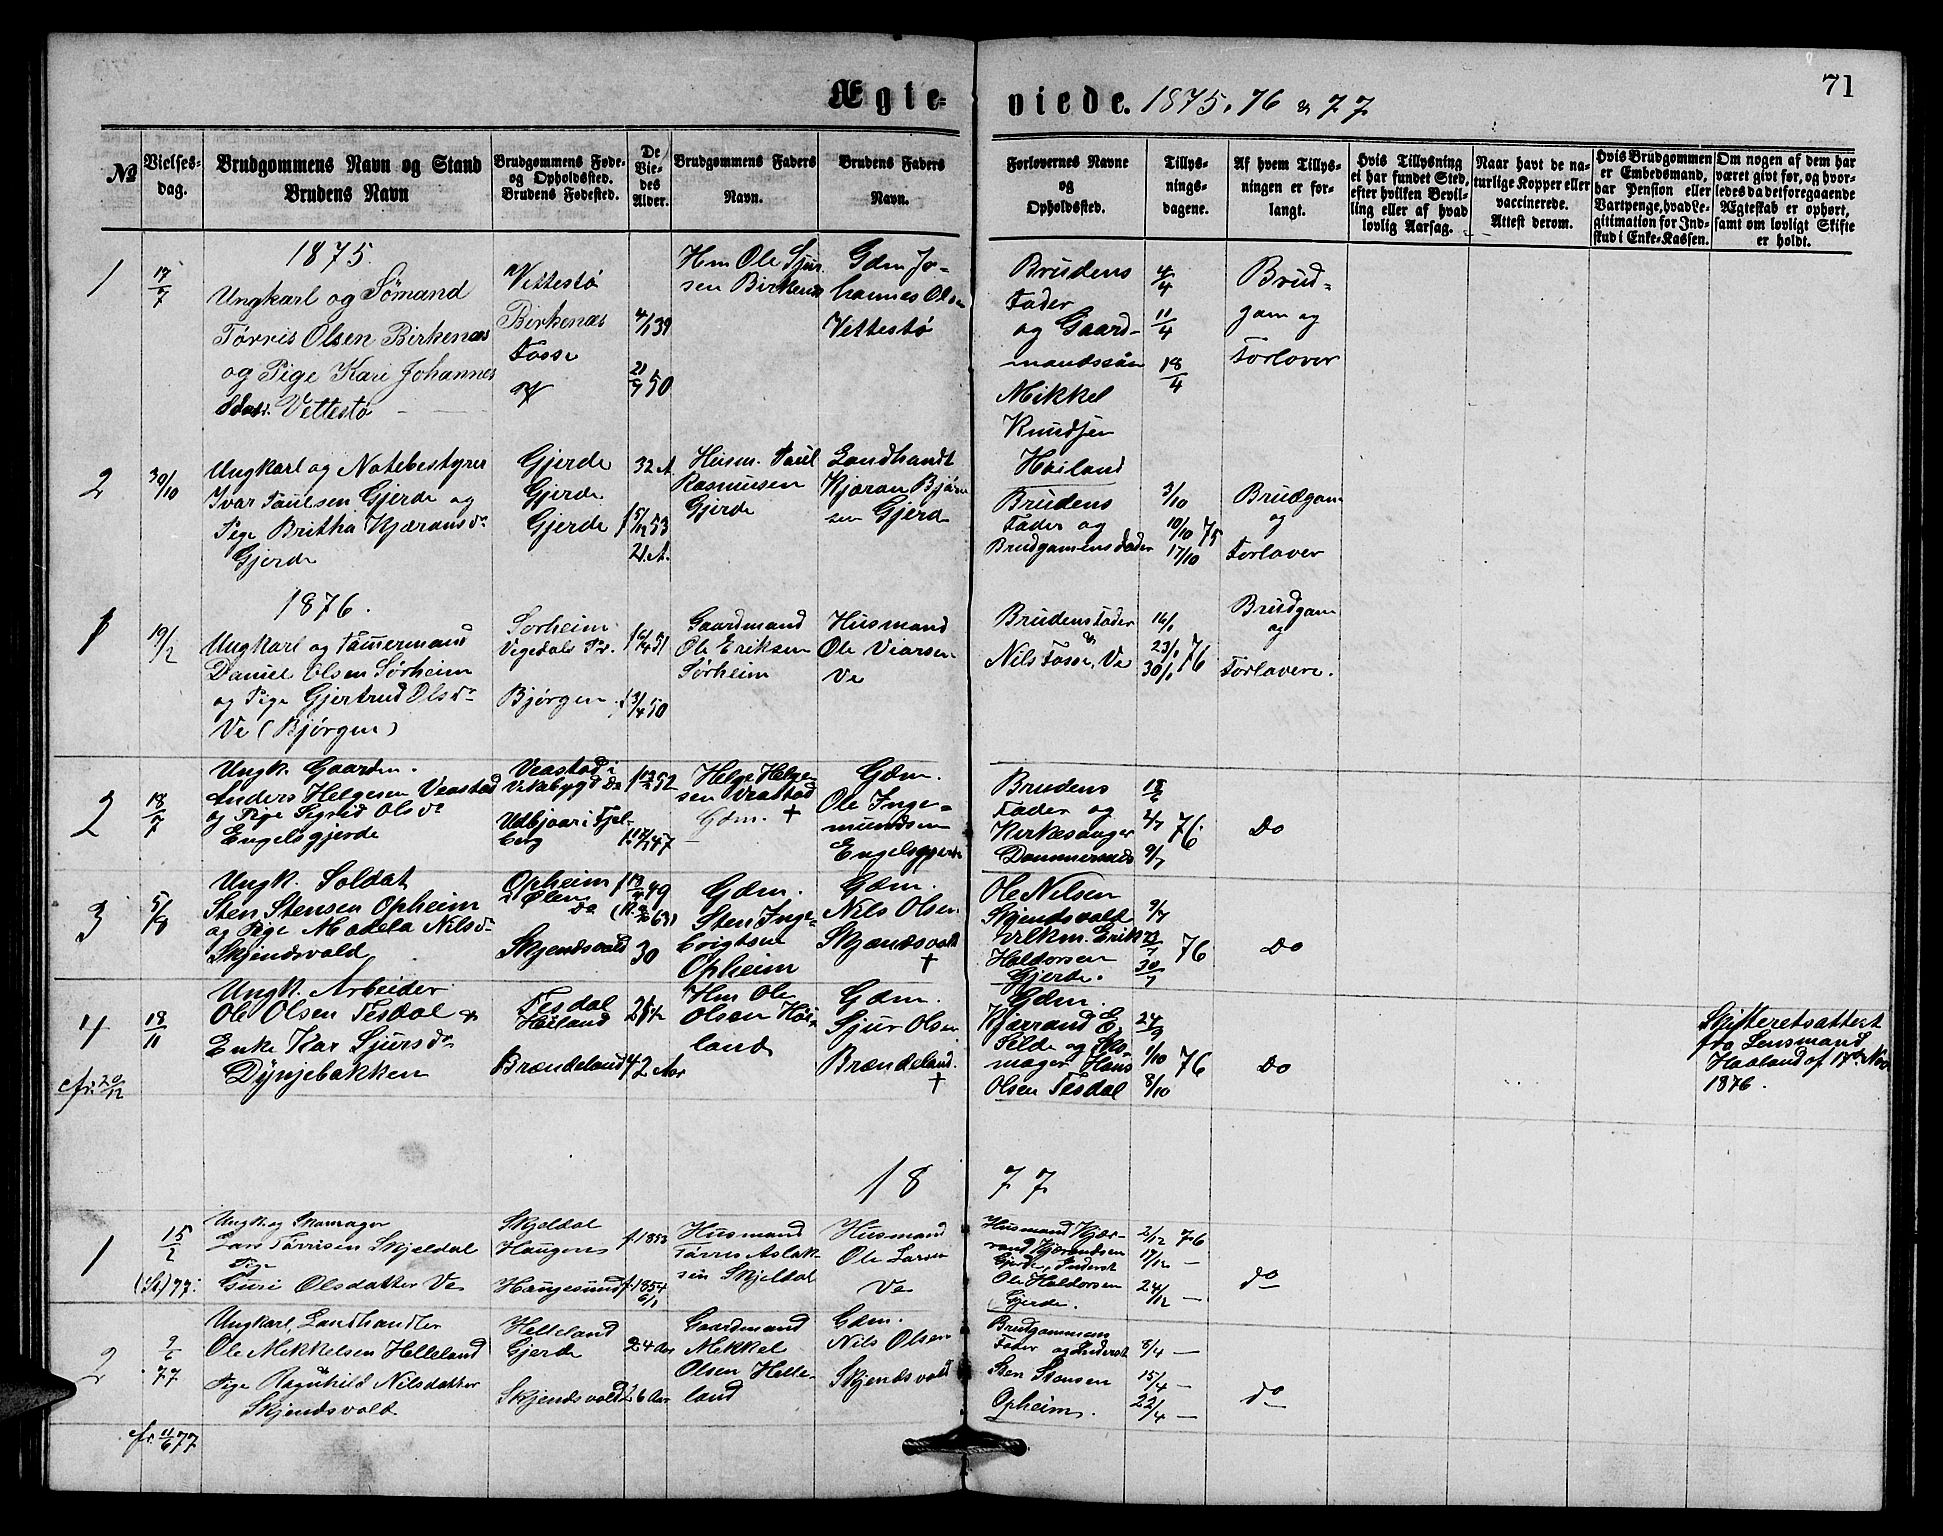 71
Ægte= viede. 1875, 76 & 77
№
Vielses-
dag.
Brudgommens Navn og Stand
Brudens Navn
Brudgommens Føde-
og Opholdssted.
Brudens Fødested.
De
Vie-
des
Alder.
Brudgommens Faders
Navn.
Brudens Faders
Navn.
Forlovernes Navne
og
Opholdssted.
Tillys-
nings-
dagene.
Af hvem Tillys-
ningen er for-
langt.
Hvis Tillysning
ei har fundet Sted,
efter hvilken Bevil-
ling eller af hvad
lovlig Aarsag.
Naar havt de na-
turlige Kopper eller
vaccinerede.
Attest derom.
Hvis Brudgommen
er Embedsmand,
har Pension eller
Vartpenge, hvad Le-
gitimation for Ind-
skud i Enke-Kassen.
Om nogen af dem har
været givt før, og hvor-
ledes da det foregaaende
Ægteskab er ophørt,
samt om lovligt Skifte
er holdt.
1875.
1
Ungkarl og Sømand
Tørris Olsen Birkenæs
og Pige Kari Johannes
Vettestø
Vettestø
Birkenæs
Fosse
4/1 39
21/7 50
Hm Ole Sjur
sen Birkenæs
Gdm Jo-
hannes Olsen
Vettestø
Brudens
Fader
og Gaard-
mandssøn
Mikkel
Knudsen
Høiland
4/4
11/4
18/4
Brud=
gom og
Forlover
2
30/10
Ungkarl og Notebestyrer
Ivar Paulsen Gjerde og
Pige Britha Kjæransdr
Gjerde
Gjerde
Gjerde
Gjerde
32 A.
53
21 A.
Husm. Paul
Rasmusen
Gjerde
Landhandl
Kjæran Bjørn
sen Gjerd
Brudens
Fader og
Brudgamens Fader
3/10
10/10 75
17/10
Brudgam
og
Forlover
1876.
1
19/2
Ungkarl og Tømermand
Daniel Olsen Sørheim
og Pige Gjertrud Olsdr
Ve (Bjørgen)
Sørheim
Vegedals Pr.
Bjørgen
51
3/4 50
Gaardmand
Ole Eriksen
Sørheim
Husmand
Ole Viarsen
Ve
Brudens Fader
&
Nils Fosse, Ve
16/1
23/1 76
30/1
Brudgam
og
Forlovere.
2
18/7
Ungk. Gaardm.
Anders Helgesen Veastad
og Pige Sigrid Olsdr
Engelsgjerde
Veastad i
Vikebygd Do
Udbjoar i Fjel-
berg
52
47
Helge Helge
sen Veastad
Gdm. †
Gdm.
Ole Inge=
mundsen
Engelsgjerde
Brudens
Fader og
Kirkesanger
Dommersnes
2/7 76.
9/7
Do
3
Ungk. Soldat
Sten Stensen Opheim
og Pige Madela Nilsdr
Skjendsvold
Opheim
i Ølen
Do
Skjendsvold
49
30
Gdm.
Sten Inge-
brigtsen
Opheim
Gdm.
Nils Olsen
Skjendsvold
†
Ole Nilsen
Skjendsvold
Erik
Haldorsen
Gjerde.
9/7
23/7 76
30/7
Do
4
18/11
Ungk. Arbeider
Ole Olsen Tesdal &
Enke Kar Sjursdr
Dynjebakken
cfr. 20/12
Tesdal
Høiland
Brændeland
42 Aar
Hm Ole
Olsen Høi-
land
Gdm.
Sjur Olsen
Brændeland.
†
Gdm.
Kjærrand E.
Silde og Sko-
mager Hans
Olsen Tesdal
24/9
1/10 76
8/10
Do
Skifteretsattest
fra Lensmand
Haaland af 17de Nov
1876.
18 77
1
15/2
77.
Ungk. og Skomager
Lars Tørrisen Skjeldal
Pige
Guri Olsdatter Ve
Skjeldal
Haugen
Haugesund
f. 1853
f. 1854
6/1
Husmand
Tørres Aslak
sen Skjeldal
Husmand
Ole Larsen
Ve
Husmand Kjær-
rand Kjærandsen
Gjerde, Inderst
Ole Haldorsen
Gjerde.
2/12 76
17/12 —
24/12 —
do
2
77
Ungkarl, Landhandler
Ole Mikkelsen Helleland
&
Pige Ragnhild Nilsdatter
Skjendsvold
cfr. 11/6 77
Helleland
Gjerde
Skjendsvold
24 Aar
26 Aar
Gaardmand
Mikkel
Olsen Helle-
land
Gdm.
Nils Olsen
Skjendsvold
Brudgommens
Fader og Inderst
Sten Stensen
Opheim.
8/4 —
15/4 —
22/4 —
do